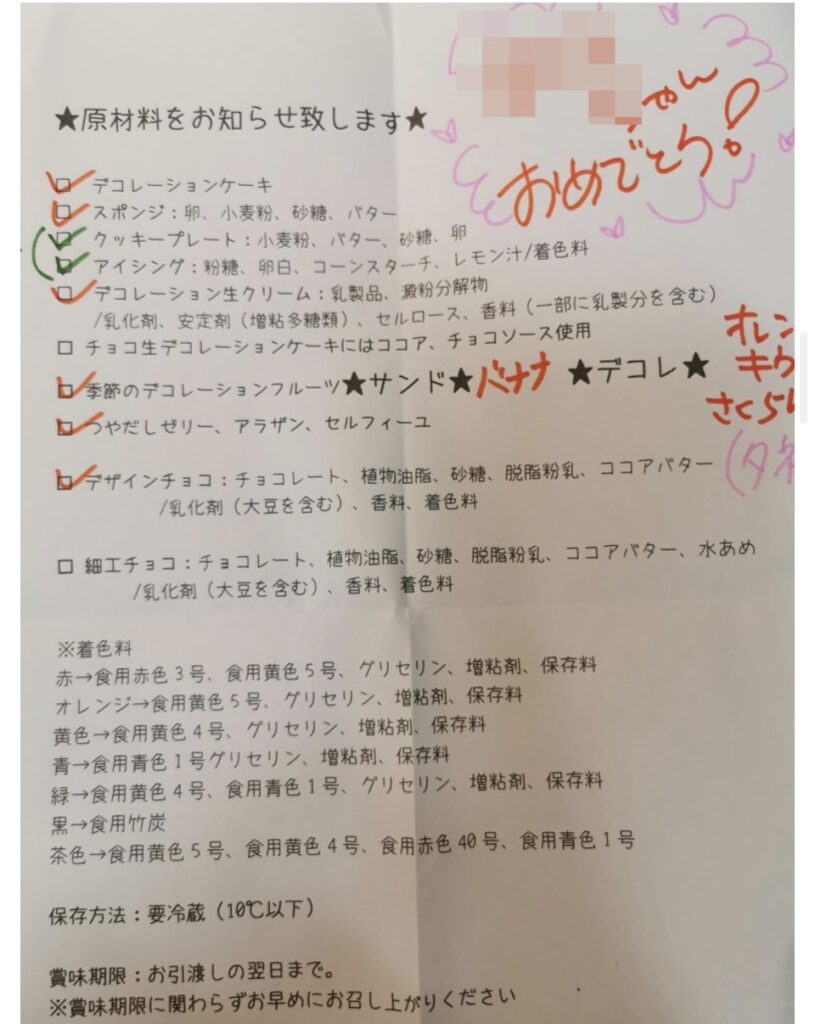 ゃん
おめでとう!
★原材料をお知らせ致します★
□ デコレーションケーキ
□ スポンジ：卵、小麦粉、砂糖、バター
□ クッキープレート：小麦粉、バター、砂糖、卵
□ アイシング：粉糖、卵白、コーンスターチ、レモン汁/着色料
□ デコレーション生クリーム：乳製品、澱粉分解物
/乳化剤、安定剤（増粘多糖類）、セルロース、香料（一部に乳製分を含む）
□ チョコ生デコレーションケーキにはココア、チョコソース使用
□ 季節のデコレーションフルーツ★サンド★バナナ ★デコレ★
オレン
キウ
さくらん
(タネ
□ つやだしゼリー、アラザン、セルフィーユ
□ デザインチョコ：チョコレート、植物油脂、砂糖、脱脂粉乳、ココアバター
/乳化剤（大豆を含む）、香料、着色料
□ 細工チョコ：チョコレート、植物油脂、砂糖、脱脂粉乳、ココアバター、水あめ
/乳化剤（大豆を含む）、香料、着色料
※着色料
赤→食用赤色3号、食用黄色5号、グリセリン、増粘剤、保存料
オレンジ→食用黄色5号、グリセリン、増粘剤、保存料
黄色→食用黄色4号、グリセリン、増粘剤、保存料
青→食用青色1号グリセリン、増粘剤、保存料
緑→食用黄色4号、食用青色1号、グリセリン、増粘剤、保存料
黒→食用竹炭
茶色→食用黄色5号、食用黄色4号、食用赤色40号、食用青色1号
保存方法：要冷蔵（10℃以下）
賞味期限：お引渡しの翌日まで。
※賞味期限に関わらずお早めにお召し上がりください